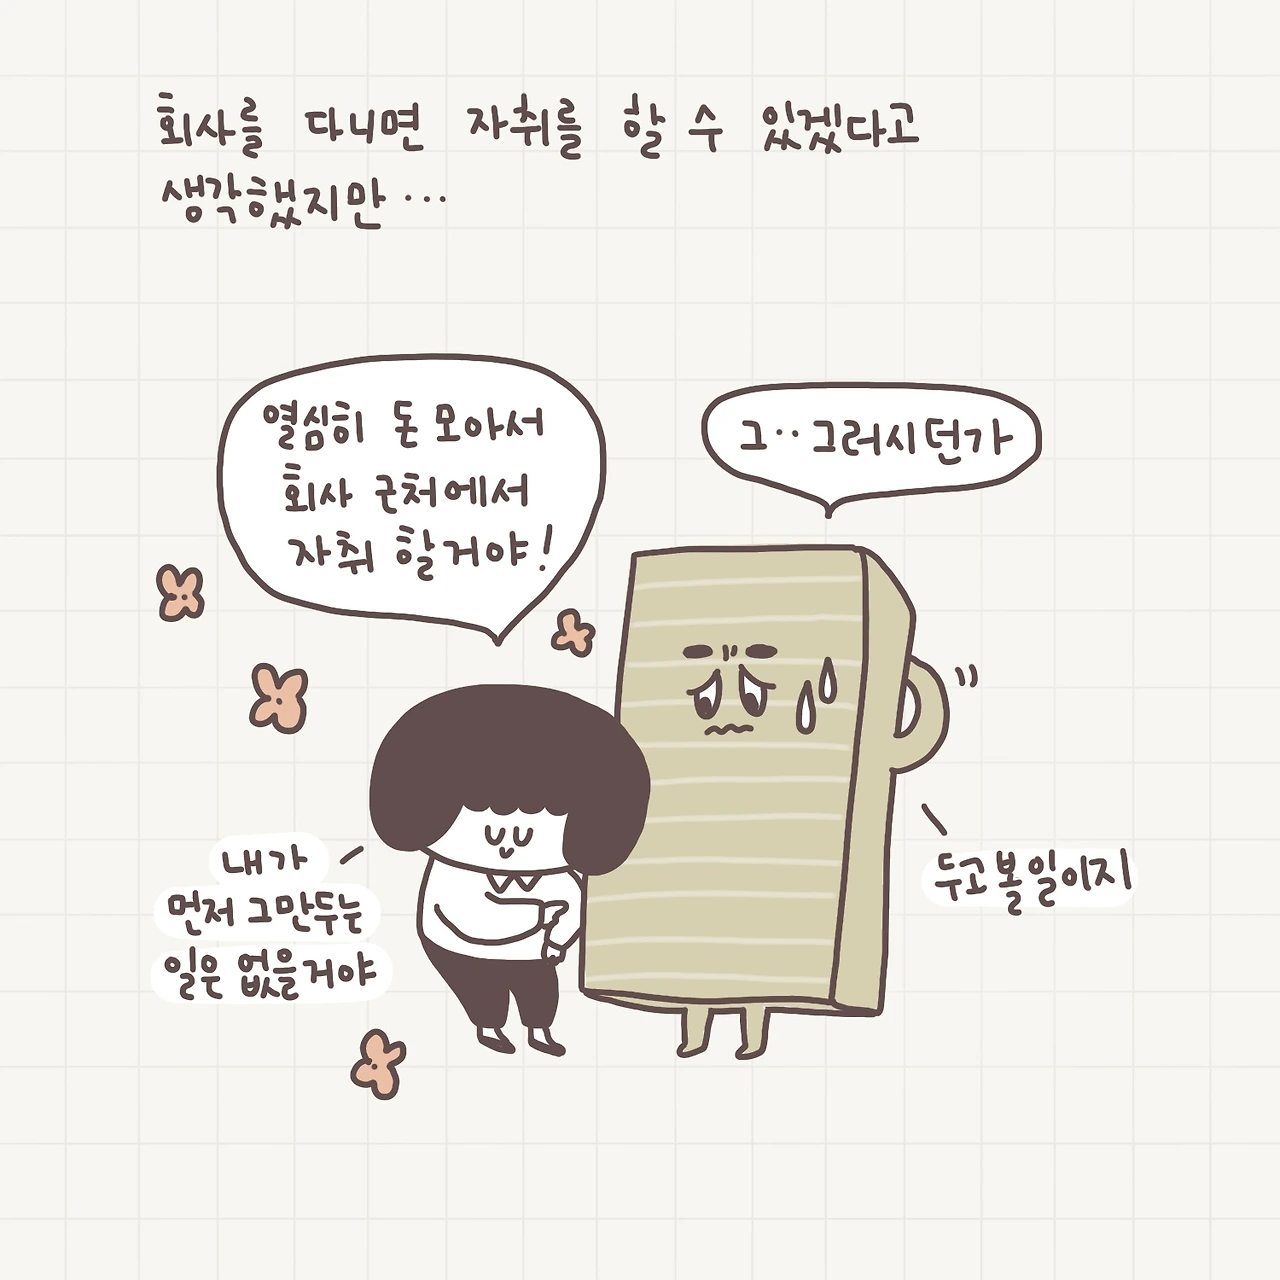 회사를 다니면 자취를 할 수 있겠다고
생각했지만...
열심히 돈 모아서
회사 근처에서
자취 할거야!
그.. 그러시던가
내가
먼저 그만두는
일은 없을거야
두고 볼 일이지